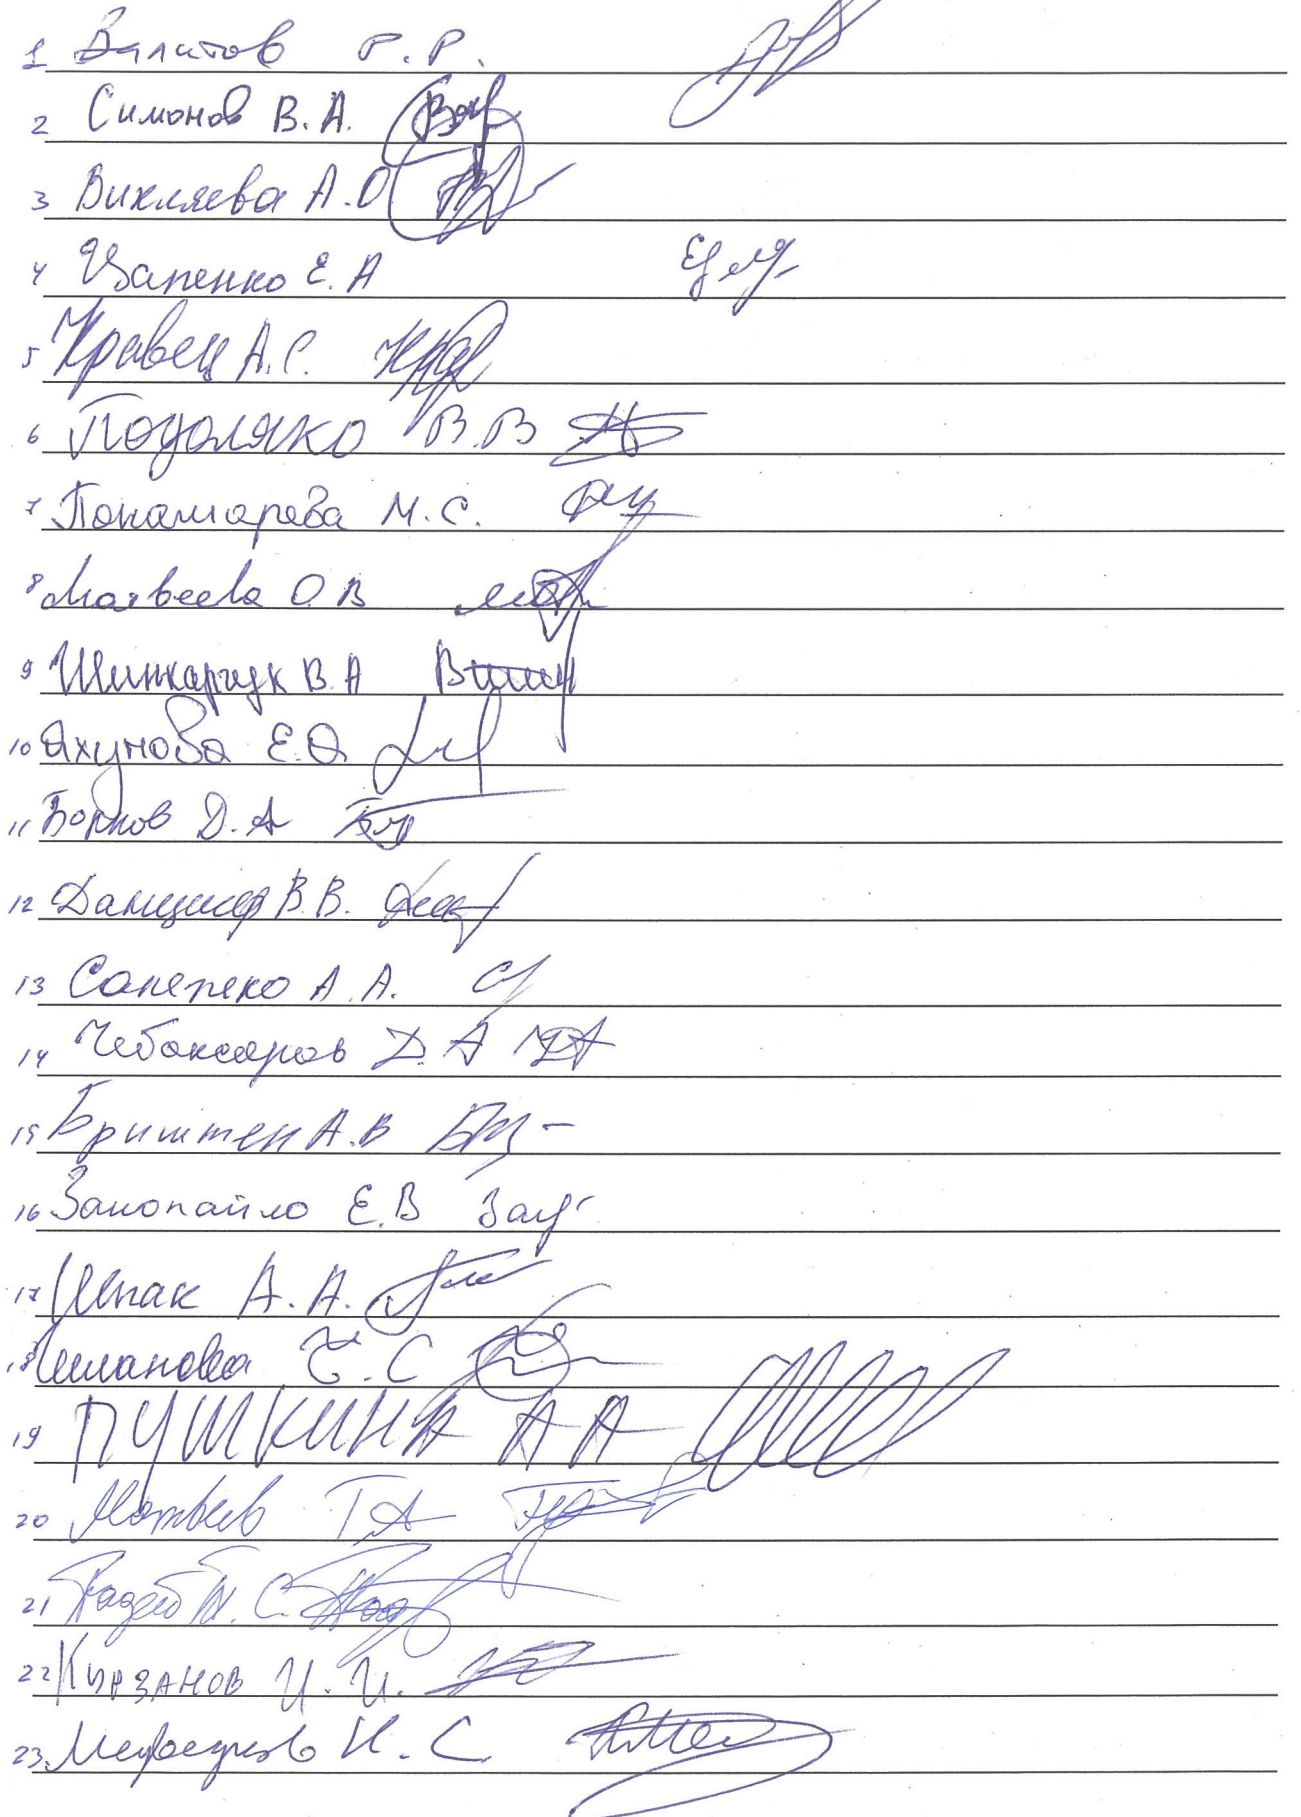 1 Валитов Р. Р.
2 Симонов В. А.
3 Вихляева А. О
4 Цапенко Е. А
5 Кравец А. С.
6 Подоляко В. В
7 Понамарева М. С.
8 Матвеева О. В
9 Шинкарчук В. А
10 Яхунова Е. О
11 Борков Д. А
12 Данщиков В. В.
13 Санепеко А. А.
14 Чебоксаров Д. А
15 Бриштен А. В
16 Закопайло Е. В
17 Шпак А. А.
18 С
19 ПУШКИНА А А
20 Матвеев Г А
21 С.
22 Кырзанов И. И.
23 Н. С.